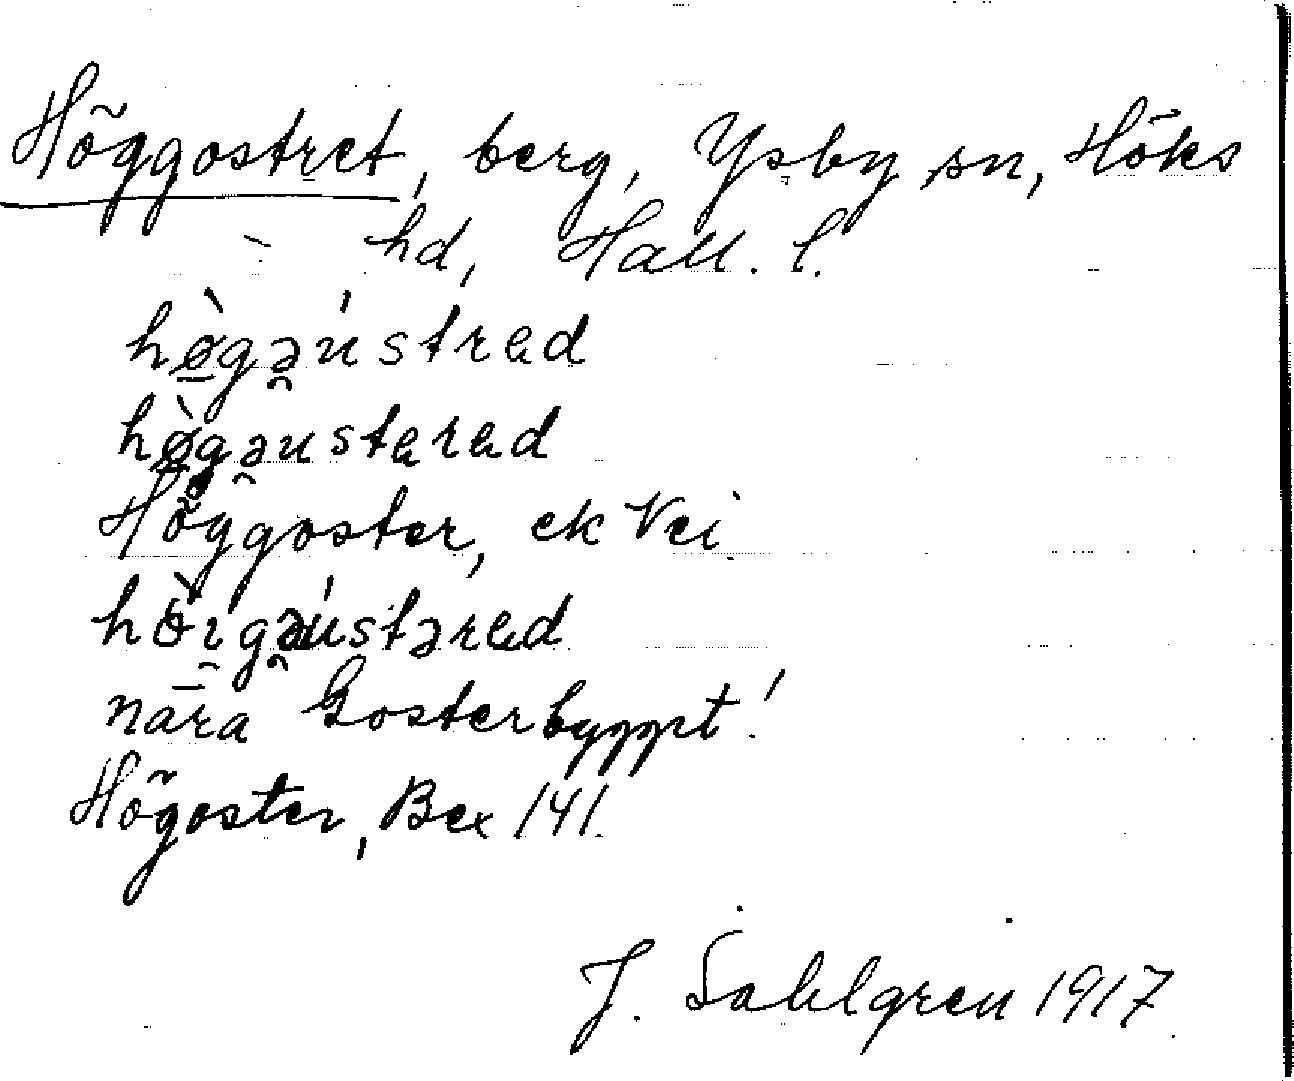 Höggostret, berg, Ysby sn, Höks
hd, Hall. l.
hø̀gə̯ústrad
hø̀gə̯ustarad
Höggoster, ek Vei
hö̀rgə̯ústərad
nära Gosterbyggt!
Högoster, Bex 141.
J. Sahlgren 1917